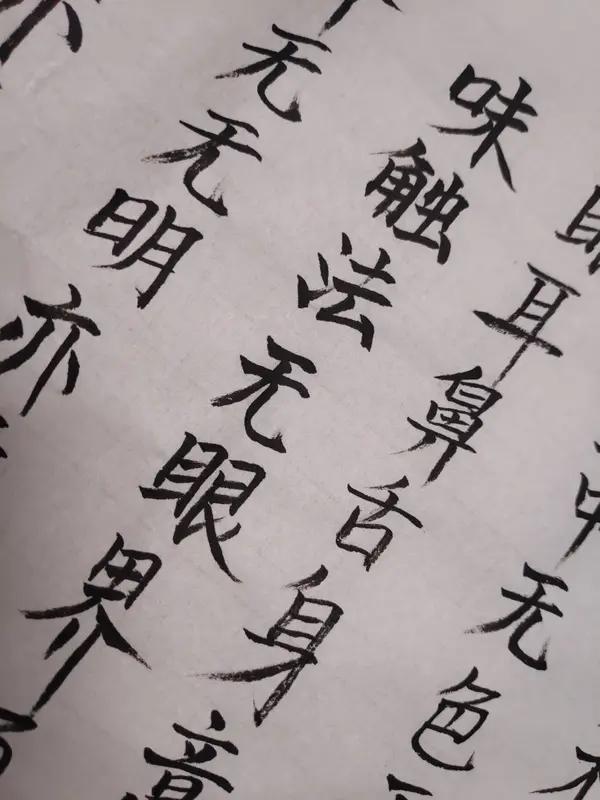 中无色
眼耳鼻舌身意
味触法无眼界
无无明亦